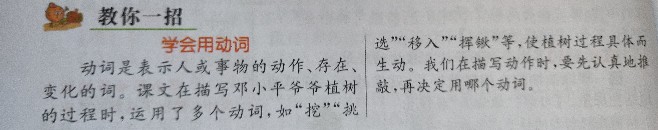 教你一招
学会用动词
动词是表示人或事物的动作、存在、
变化的词。课文在描写邓小平爷爷植树
的过程时，运用了多个动词，如“挖”“挑
选”“移入”“挥锹”等，使植树过程具体而
生动。我们在描写动作时，要先认真地推
敲，再决定用哪个动词。